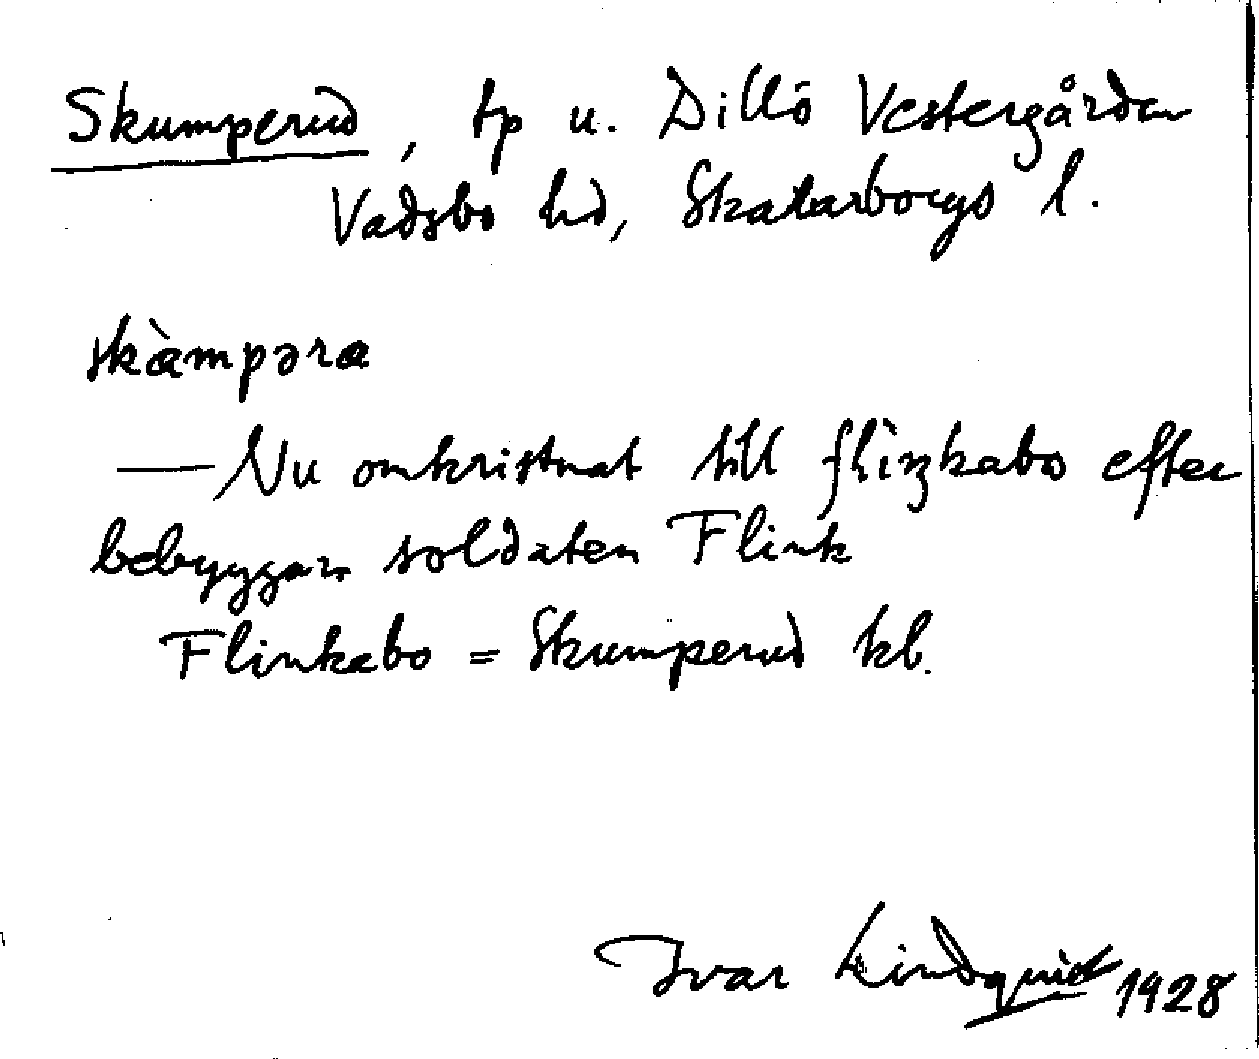 Skumperud, tp u. Dillö Vestergården
Vadsbo hd, Skaraborgs l.
skæ̀mpəra
— Nu omkristnat till flìŋkabo efter
bebyggarn soldaten Flink
Flinkabo = Skumperud kl.
Ivar Lindquist 1928